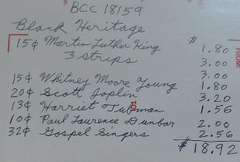 BCC 18159
Black Heritage
15¢ Martin Luther King $ 1.80
3 strips 3.00
3.00
15¢ Whitney Moore Young 1.80
20¢ Scott Joplin 3.20
13¢ Harriet Tubman 1.56
10¢ Paul Laurence Dunbar 2.00
32¢ Gospel Singers 2.56
$18.92